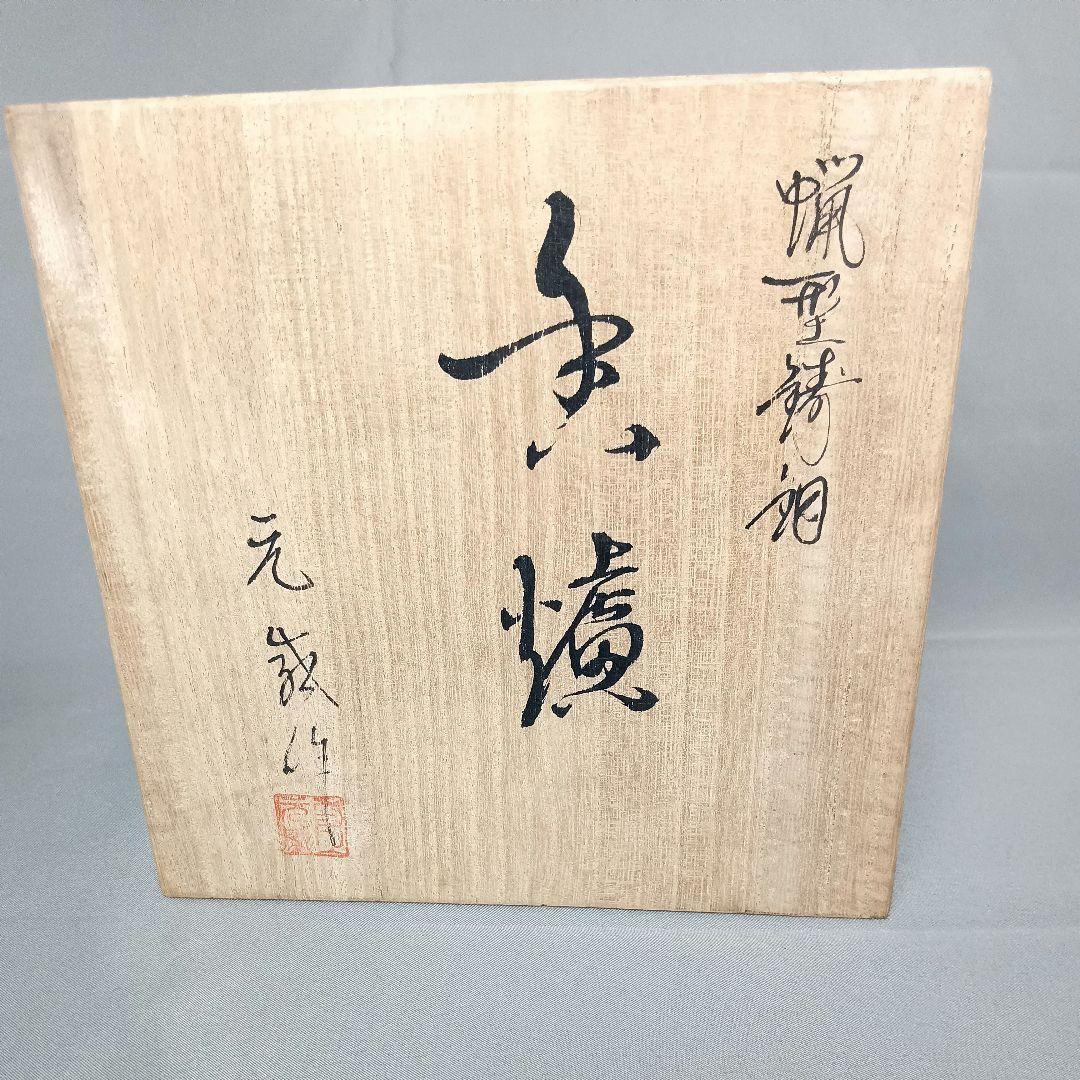 蝋型鋳銅
香爐
元 作